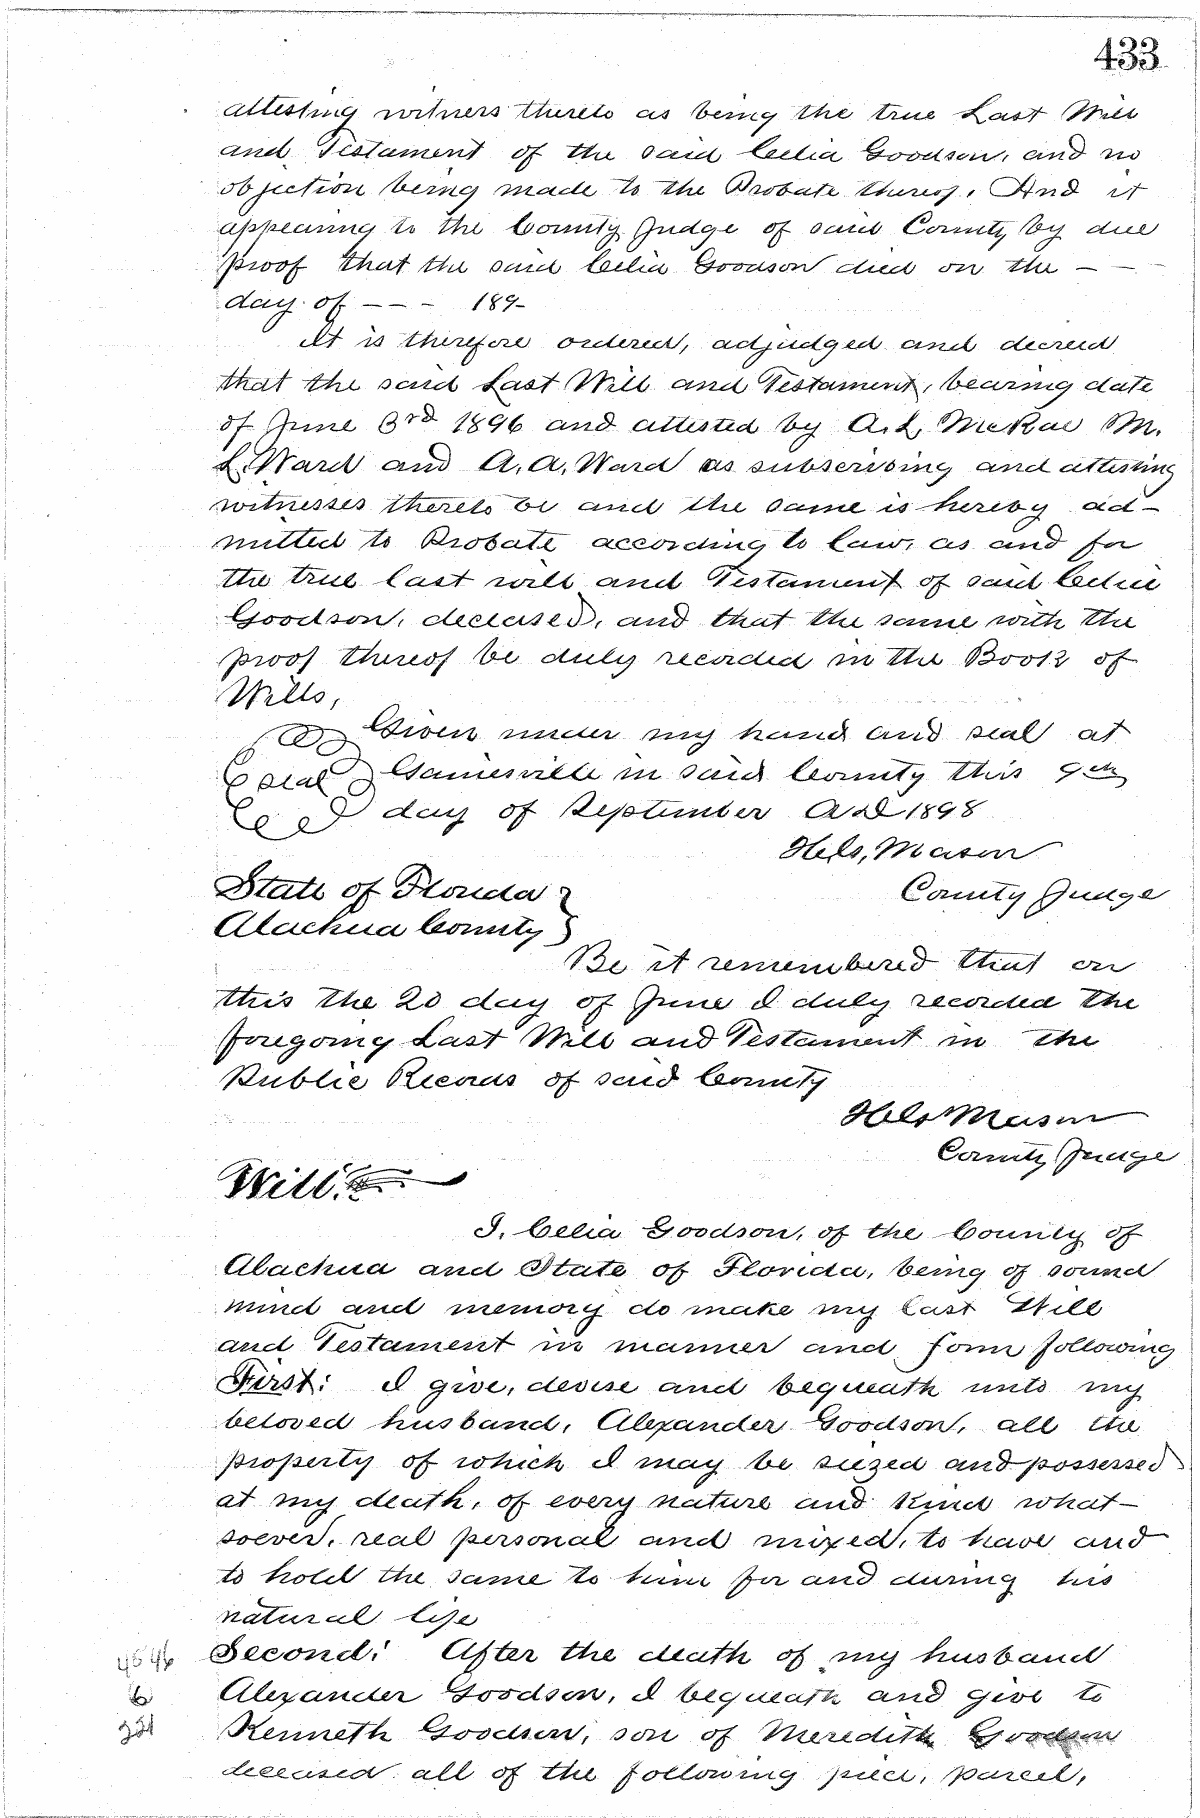 433
attesting witness thereto as being the true Last Will
and Testament of the said Celia Goodson, and no
objection being made to the Probate thereof, And it
appearing to the County Judge of said County by due
proof that the said Celia Goodson died on the — —
day of — — - 189-
It is therefore ordered, adjudged and decreed
that the said Last Will and Testament, bearing date
of June 3rd 1896 and attested by A. L. McRae M.
L. Ward and A. A. Ward as subscribing and attesting
witnesses thereto be and the same is hereby ad-
mitted to Probate according to law, as and for
the true last will and Testament of said Celia
Goodson, deceased, and that the same with the
proof thereof be duly recorded in the Book of
Wills,
Given under my hand and seal at
seal Gainesville in said County this 9th
day of September A.D. 1898
Mason
County Judge
State of Florida }
Alachua County }
Be it remembered that on
this the 20 day of June I duly recorded the
foregoing Last Will and Testament in the
Public Records of said County
Mason
County Judge
Will.
I, Celia Goodson, of the County of
Alachua and State of Florida, being of sound
mind and memory do make my last Will
and Testament in manner and form following
First: I give, devise and bequeath unto my
beloved husband, Alexander Goodson, all the
property of which I may be siezed and possessed
at my death, of every nature and kind what-
soever, real personal and mixed, to have and
to hold the same to him for and during his
natural life
Second: After the death of my husband
Alexander Goodson, I bequeath and give to
Kenneth Goodson, son of Meredith Goodson
deceased all of the following piece, parcel,